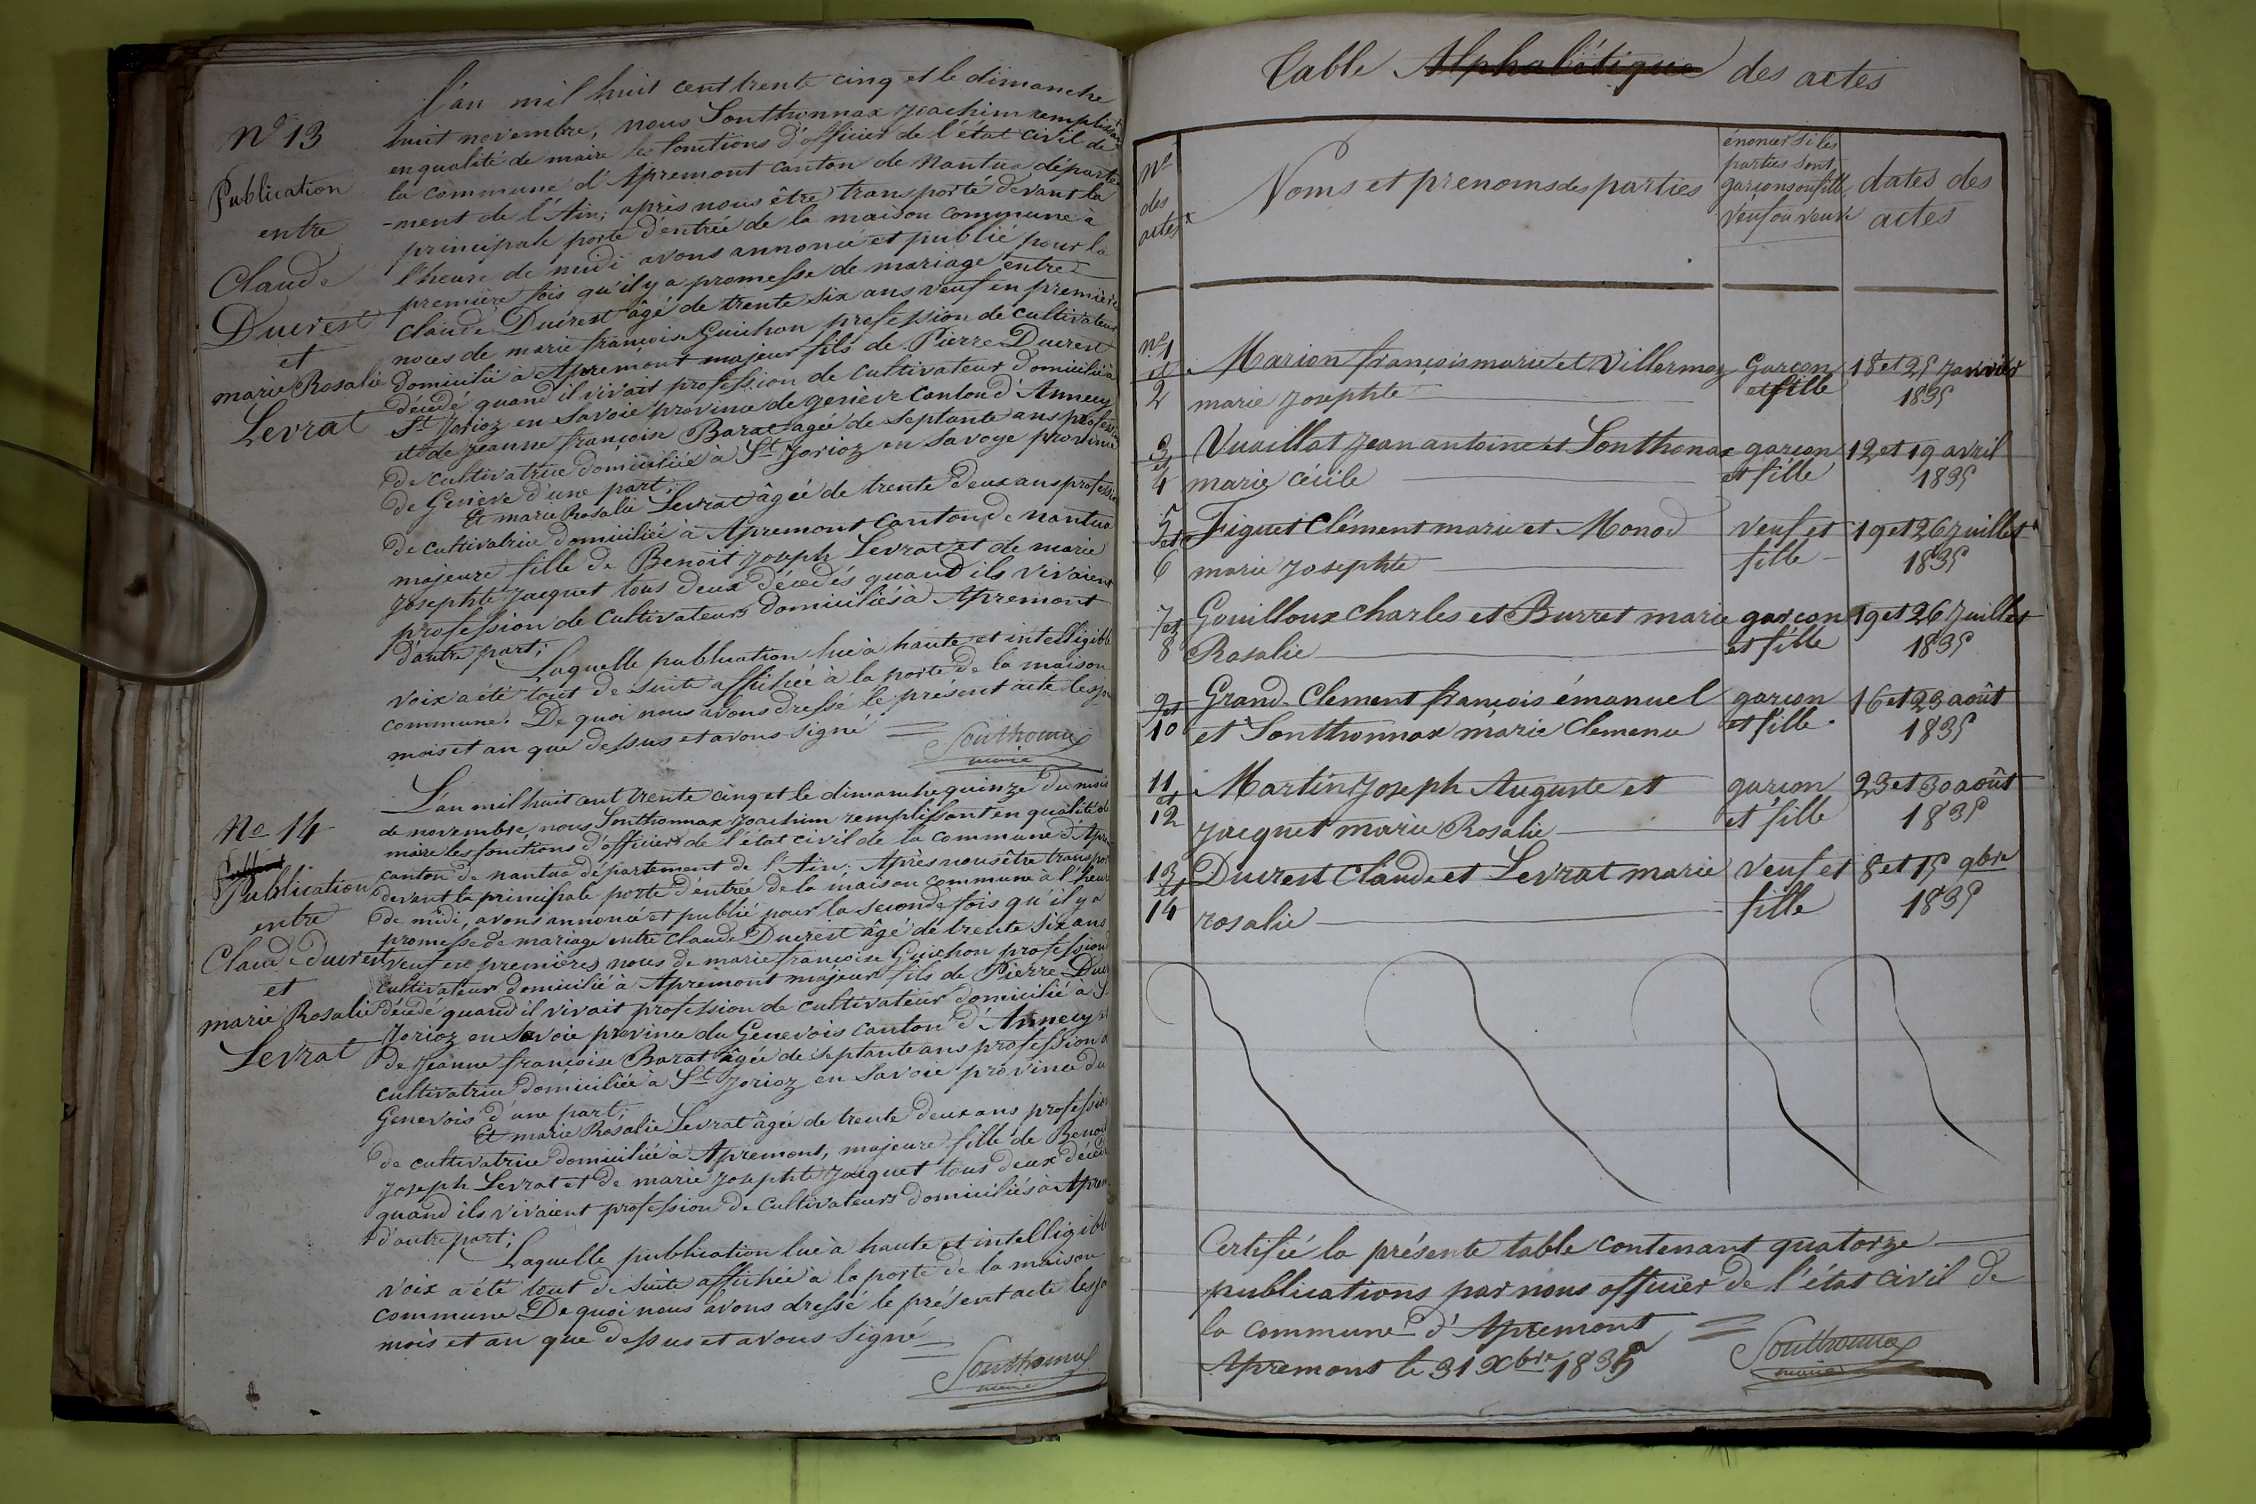 N° 13
Publication
entre
Claude
Ducrest
et
marie Rosalie
Levrat
L'an mil huit cent trente cinq et le dimanche
huit novembre, nous Sonthonnax Joachim remplissant
en qualité de maire les fonctions d'officier de l'état civil de
la commune d'Apremont canton de nantua départe
-ment de l'Ain; après nous être transporté devant la
principale porte d'entrée de la maison commune à
l'heure de midi avons annoncé et publié pour la
première fois qu'il y a promesse de mariage entre
Claude Ducrest âgé de trente six ans veuf en premières
noces de marie françoise Guichon profession de cultivateur
domicilié à Apremont majeur fils de Pierre Ducrest
décédé quand il vivait profession de cultivateur domicilié à
St Jorioz en Savoie province de genève Canton d'Annecy
et de jeanne françoise Barat âgée de septante ans profession
de cultivatrice domiciliée à St Jorioz en Savoye province
de Genève d'une part;
Et marie Rosalie Levrat âgée de trente deux ans profession
de cultivatrice domiciliée à Apremont canton de nantua
majeure fille de Benoit joseph Levrat et de marie
Josephte Jacquet tous deux décédés quand ils vivaient
profession de cultivateurs domiciliés à Apremont
d'autre part;
Laquelle publication lue à haute et intelligible
voix a été tout de suite affichée à la porte de la maison
commune. De quoi nous avons dressé le présent acte les jo
mois et an que dessus et avons signé
Sonthonnax
maire
N° 14
Publication
entre
Claude Ducrest
et
marie Rosalie
Levrat
L'an mil huit cent trente cinq et le dimanche quinze du mois
de novembre, nous Sonthonnax Joachim remplissant en qualité de
maire les fonctions d'officier de l'état civil de la commune d'Apre
canton de nantua département de l'Ain. Après nous être transpor
devant la principale porte d'entrée de la maison commune à l'heure
de midi, avons annoncé et publié pour la seconde fois qu'il y a
promesse de mariage entre Claude Ducrest âgé de trente six ans
veuf en premières noces de marie françoise Guichon profession
cultivateur domicilié à Apremont majeur fils de Pierre Duc
décédé quand il vivait profession de cultivateur domicilié à S
Jorioz en Savoie province du Genevois canton d'Annecy et
de Jeanne françoise Barat âgée de septante ans profession d
cultivatrice domiciliée à St Jorioz en Savoie province du
Genevois d'une part;
Et marie Rosalie Levrat âgée de trente deux ans profession
de cultivatrice domiciliée à Apremont, majeure fille de Benoi
joseph Levrat et de marie Josephte Jacquet tous deux décéd
quand ils vivaient profession de cultivateurs domiciliés à Aprem
d'autre part;
Laquelle publication lue à haute et intelligibl
voix a été tout de suite affichée à la porte de la maison
commune De quoi nous avons dressé le présent acte les jo
mois et an que dessus et avons signé
Sonthonnax
maire
Table Alphabétique des actes
Nos des actes
Noms et prenoms des parties
énoncer si les parties sont garçons ou fille veuf ou veuve
dates des actes
nos 1 et 2
Marion françois marie et Villermoz
marie Josephte
Garçon et fille
18 et 25 Janvier 1835
3 et 4
Vuaillat Jean antoine et Sonthonax
marie cécile
garçon et fille
12 et 19 avril 1835
5 et 6
Figuet Clément marie et Monod
marie Josephte
veuf et fille
19 et 26 Juillet 1835
7 et 8
Gouilloux Charles et Burret marie
Rosalie
garçon et fille
19 et 26 Juillet 1835
9 et 10
Grand-Clement françois émanuel
et Sonthonnax marie Clemence
garçon et fille
16 et 23 août 1835
11 et 12
Martin Joseph Auguste et
jacquet marie Rosalie
garçon et fille
23 et 30 août 1835
13 et 14
Ducrest Claude et Levrat marie
rosalie
veuf et fille
8 et 15 9bre 1835
Certifié la présente table contenant quatorze
publications par nous officier de l'état civil de
la commune d'Apremont
Apremont le 31 Xbre 1835
Sonthonnax
maire